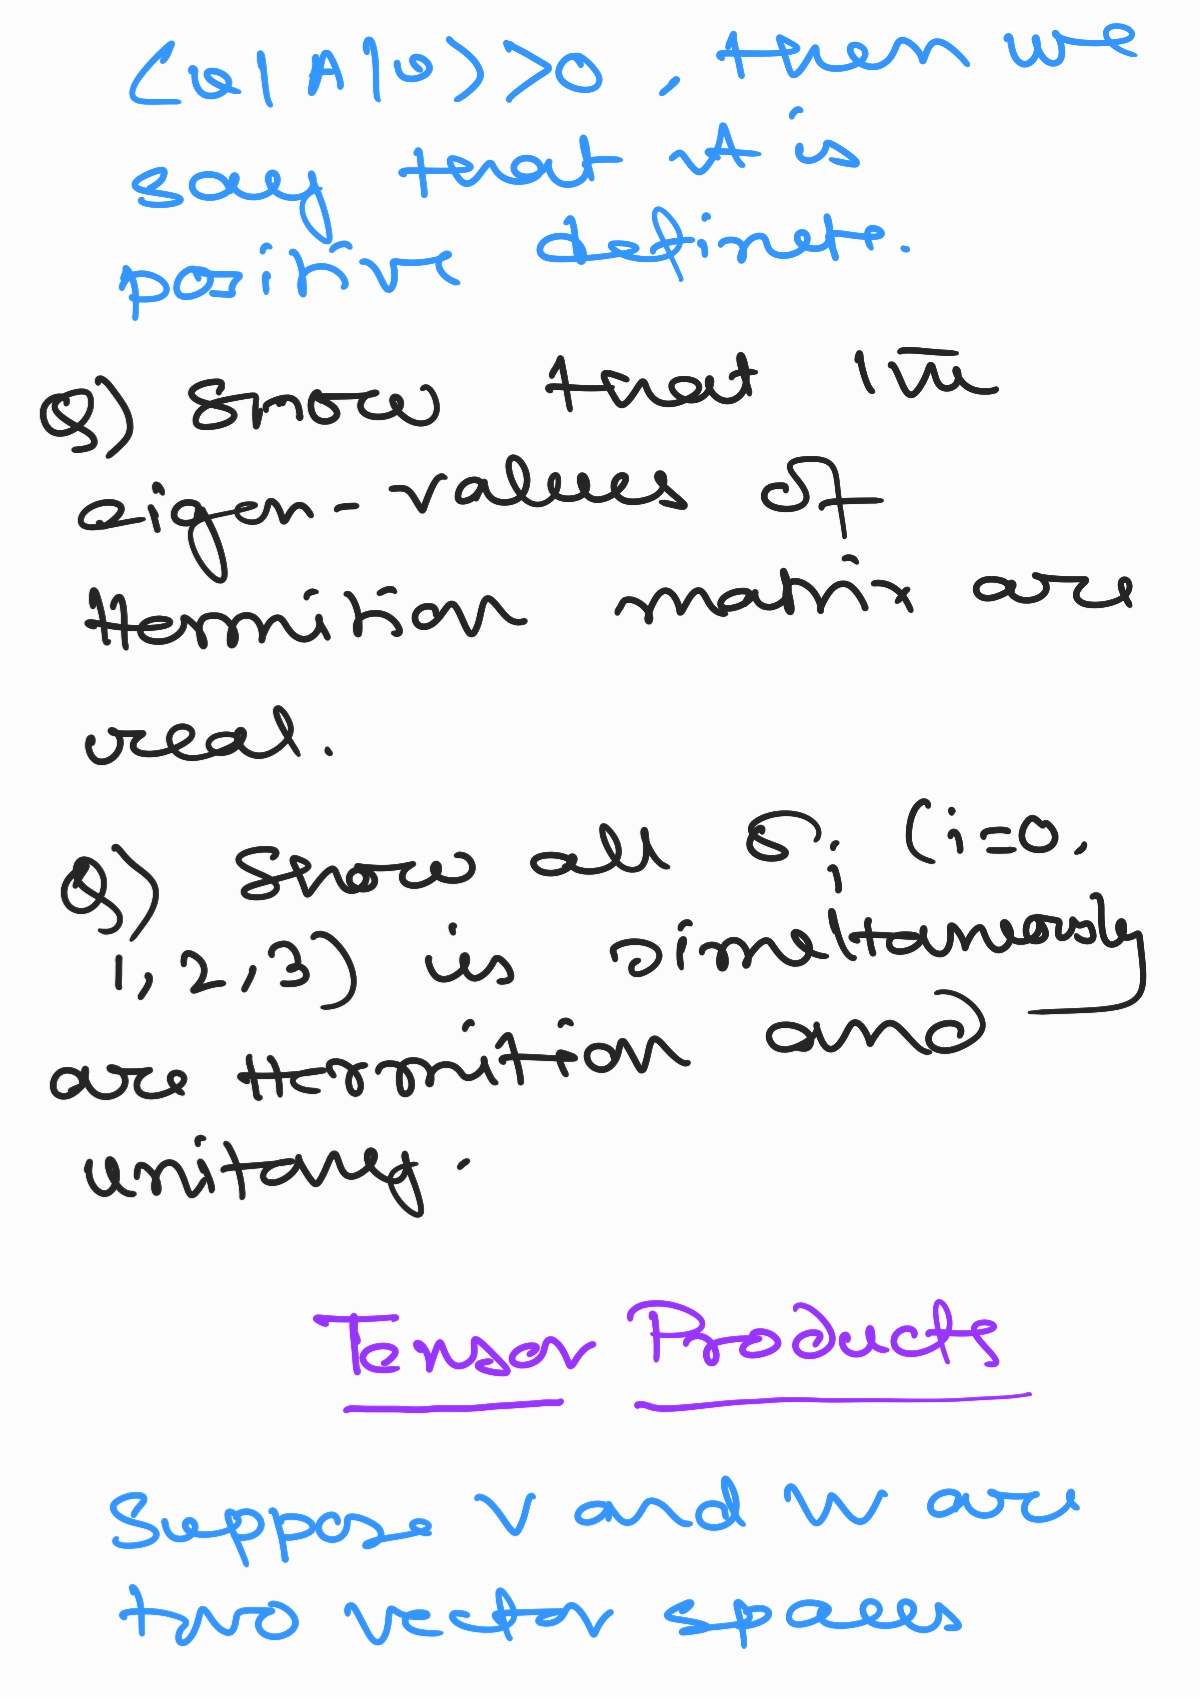 ⟨v|A|v⟩>0, then we
say that A is
positive definete.
Q) Show that the
eigen-values of
Hermition matrix are
real.
Q) Show all σi (i=0,
1, 2, 3) is simeltaneously
are Hermition and
unitary.
Tensor Products
Suppose V and W are
two vector spaces